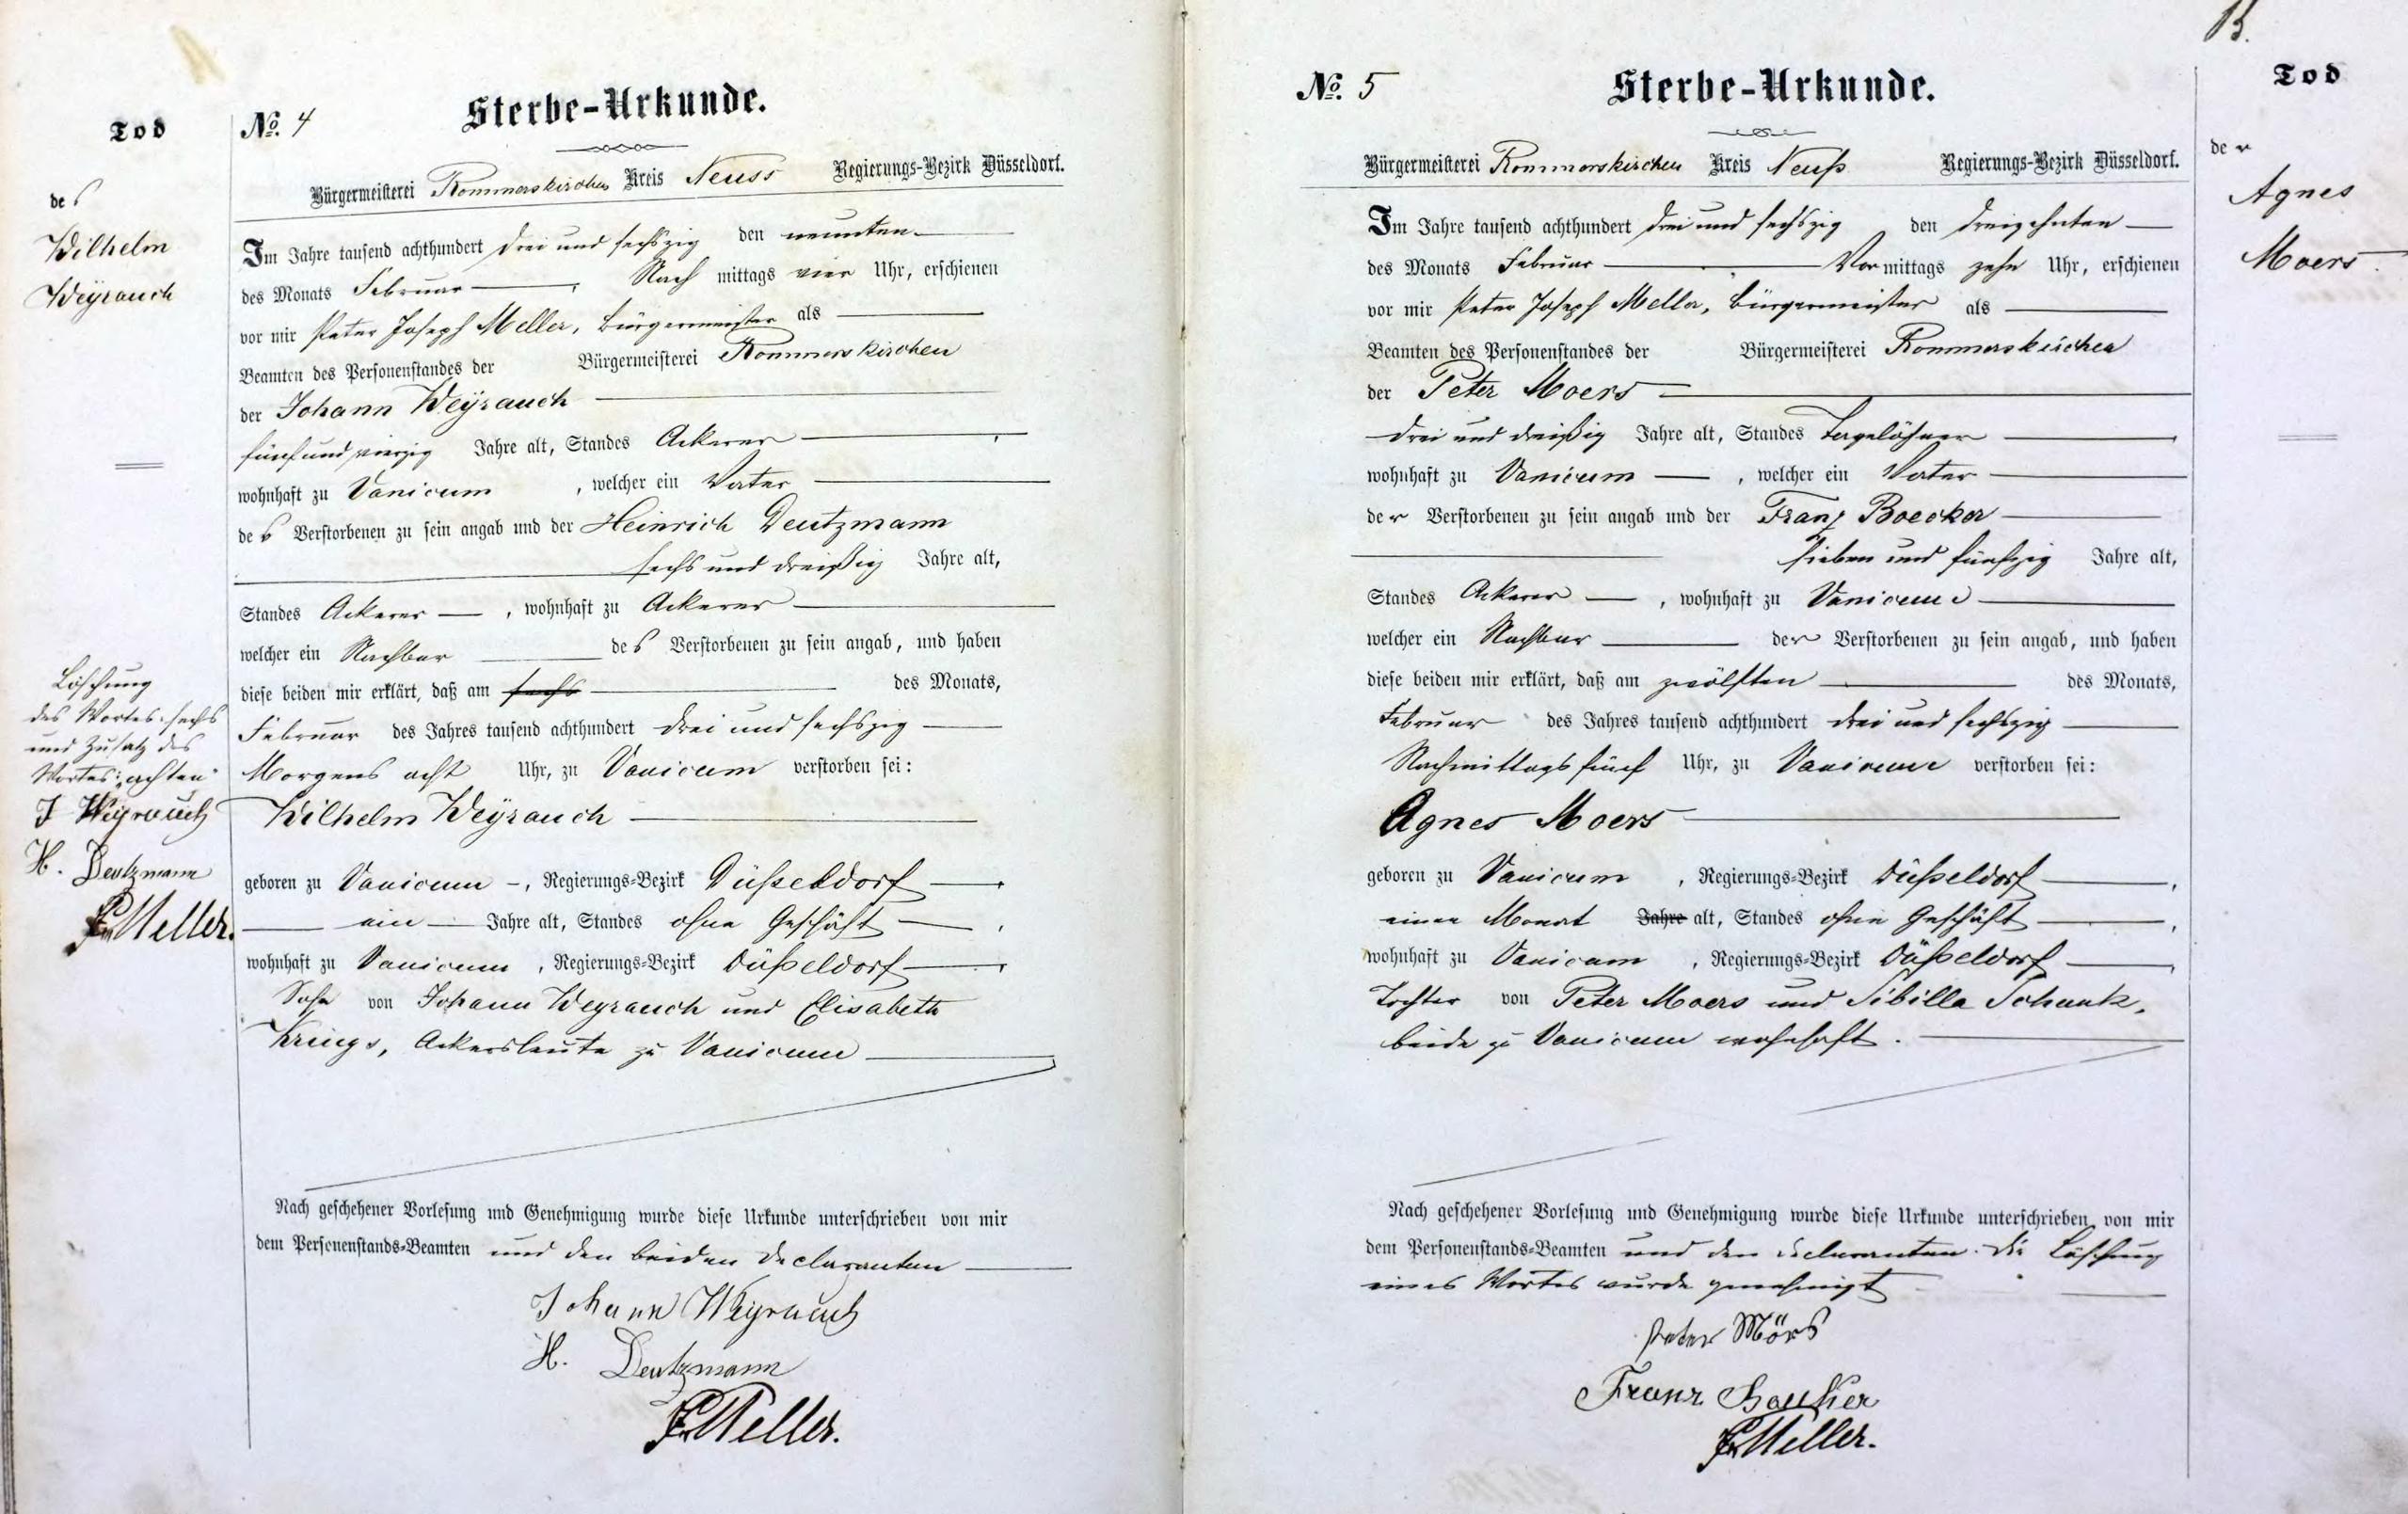 Tod
des
Wilhelm
Weÿrauch
No. 4
Sterbe-Urkunde.
Bürgermeisterei Rommerskirchen Kreis Neuss Regierungs-Bezirk Düsseldorf.
Im Jahre tausend achthundert drei und sechszig den neunten
des Monats Februar Nach mittags vier Uhr, erschienen
vor mir Peter Joseph Meller, Bürgermeister als
Beamten des Personenstandes der Bürgermeisterei Rommerskirchen
der Johann Weÿrauch
fünf und vierzig Jahre alt, Standes Ackerer
wohnhaft zu Vanicum, welcher ein Vater
des Verstorbenen zu sein angab und der Heinrich Deutzmann
sechs und dreißig Jahre alt,
Standes Ackerer, wohnhaft zu Ackerer
welcher ein Nachbar des Verstorbenen zu sein angab, und haben
diese beiden mir erklärt, daß am sechs des Monats,
Februar des Jahres tausend achthundert drei und sechszig
Morgens acht Uhr, zu Vanicum verstorben sei:
Wilhelm Weÿrauch
geboren zu Vanicum, Regierungs-Bezirk Düßeldorf,
ein Jahre alt, Standes ohne Geschäft,
wohnhaft zu Vanicum, Regierungs-Bezirk Düßeldorf,
Sohn von Johann Weyrauch und Elisabeth
Krings, Ackersleute zu Vanicum
Löschung
des Wortes sechs
und Zusatz des
Wortes: "achten"
J Weyrauch
H. Deutzmann
PJMeller.
Nach geschehener Vorlesung und Genehmigung wurde diese Urkunde unterschrieben von mir
dem Personenstands-Beamten und den beiden Declaranten
Johann Weyrauch
H. Deutzmann
PJMeller.
No. 5
Sterbe-Urkunde.
Bürgermeisterei Rommerskirchen Kreis Neuß Regierungs-Bezirk Düsseldorf.
Im Jahre tausend achthundert drei und sechszig den dreizehnten
des Monats Februar Vor mittags zehn Uhr, erschienen
vor mir Peter Joseph Meller, Bürgermeister als
Beamten des Personenstandes der Bürgermeisterei Rommerskirchen
der Peter Moers
drei und dreißig Jahre alt, Standes Tagelöhner
wohnhaft zu Vanicum, welcher ein Vater
der Verstorbenen zu sein angab und der Franz Boecker
sieben und fünfzig Jahre alt,
Standes Ackerer, wohnhaft zu Vanicum
welcher ein Nachbar der Verstorbenen zu sein angab, und haben
diese beiden mir erklärt, daß am zwölften des Monats,
Februar des Jahres tausend achthundert drei und sechszig
Nachmittags fünf Uhr, zu Vanicum verstorben sei:
Agnes Moers
geboren zu Vanicum, Regierungs-Bezirk Düßeldorf,
einen Monat Jahre alt, Standes ohne Geschäft,
wohnhaft zu Vanicum, Regierungs-Bezirk Düßeldorf,
Tochter von Peter Moers und Sibilla Schunk,
beide zu Vanicum wohnhaft.
Nach geschehener Vorlesung und Genehmigung wurde diese Urkunde unterschrieben von mir
dem Personenstands-Beamten und den Declaranten. Die Löschung
eines Wortes wurde genehmigt
Peter Mörs
Franz Bœcker
PJMeller.
Tod
der
Agnes
Moers